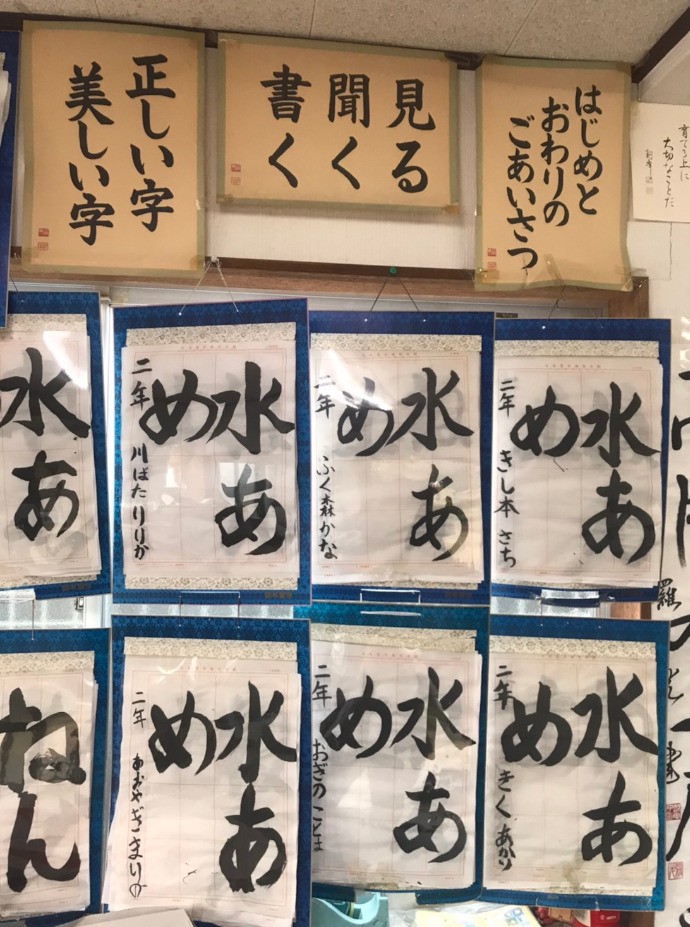 はじめと
おわりの
ごあいさつ
見る
聞く
書く
正しい字
美しい字
育てる上に
大切なことだ
水あ
め
二年
きし本 さち
水あ
め
二年
ふく森かな
水あ
め
二年
川ばたりりか
水あ
水あ
め
二年
きく あかり
水あ
め
二年
おぎの ことは
水あ
め
二年
あおやぎ まりの
ねん
羅